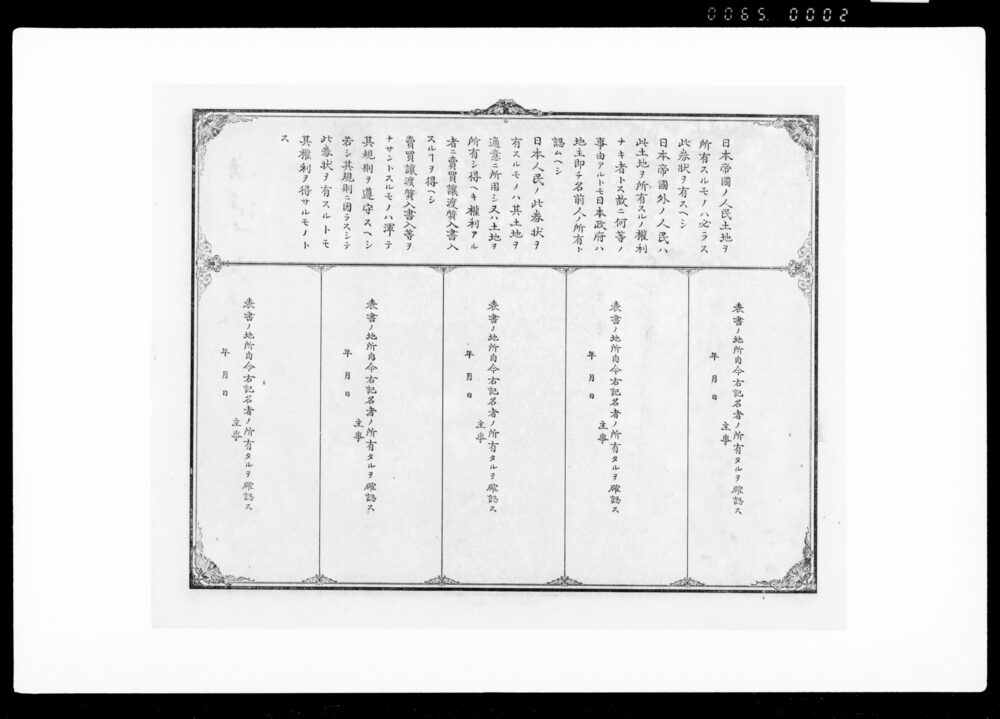 0065 0002
日本帝國ノ人民土地ヲ
所有スルモノハ必ラス
此券狀ヲ有スヘシ
日本帝國外ノ人民ハ
此土地ヲ所有スルノ權利
ナキ者トス故ニ何等ノ
事由アルトモ日本政府ハ
地主即チ名前人ノ所有ト
認ムヘシ
日本人民ノ此券狀ヲ
有スルモノハ其土地ヲ
適意ニ所用シ又ハ土地ヲ
所有シ得ヘキ權利アル
者ニ賣買讓渡質入書入
スルヿヲ得ヘシ
賣買讓渡質入書入等ヲ
ナサントスルモノハ渾テ
其規則ヲ遵守スヘシ
若シ其規則ニ因ラスシテ
此券狀ヲ有スルトモ
其權利ヲ得サルモノト
ス
表書ノ地所自今右記名者ノ所有タルヲ確認ス
主事
年月日
表書ノ地所自今右記名者ノ所有タルヲ確認ス
主事
年月日
表書ノ地所自今右記名者ノ所有タルヲ確認ス
主事
年月日
表書ノ地所自今右記名者ノ所有タルヲ確認ス
主事
年月日
表書ノ地所自今右記名者ノ所有タルヲ確認ス
主事
年月日